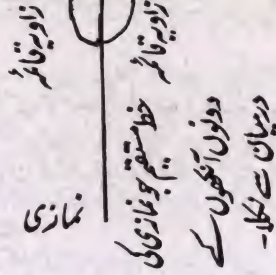 زاویہ قائمہ
زاویہ قائمہ
نمازی
خط مستقیم جو نمازی کی
دونوں آنکھوں کے
درمیان سے نکلا۔